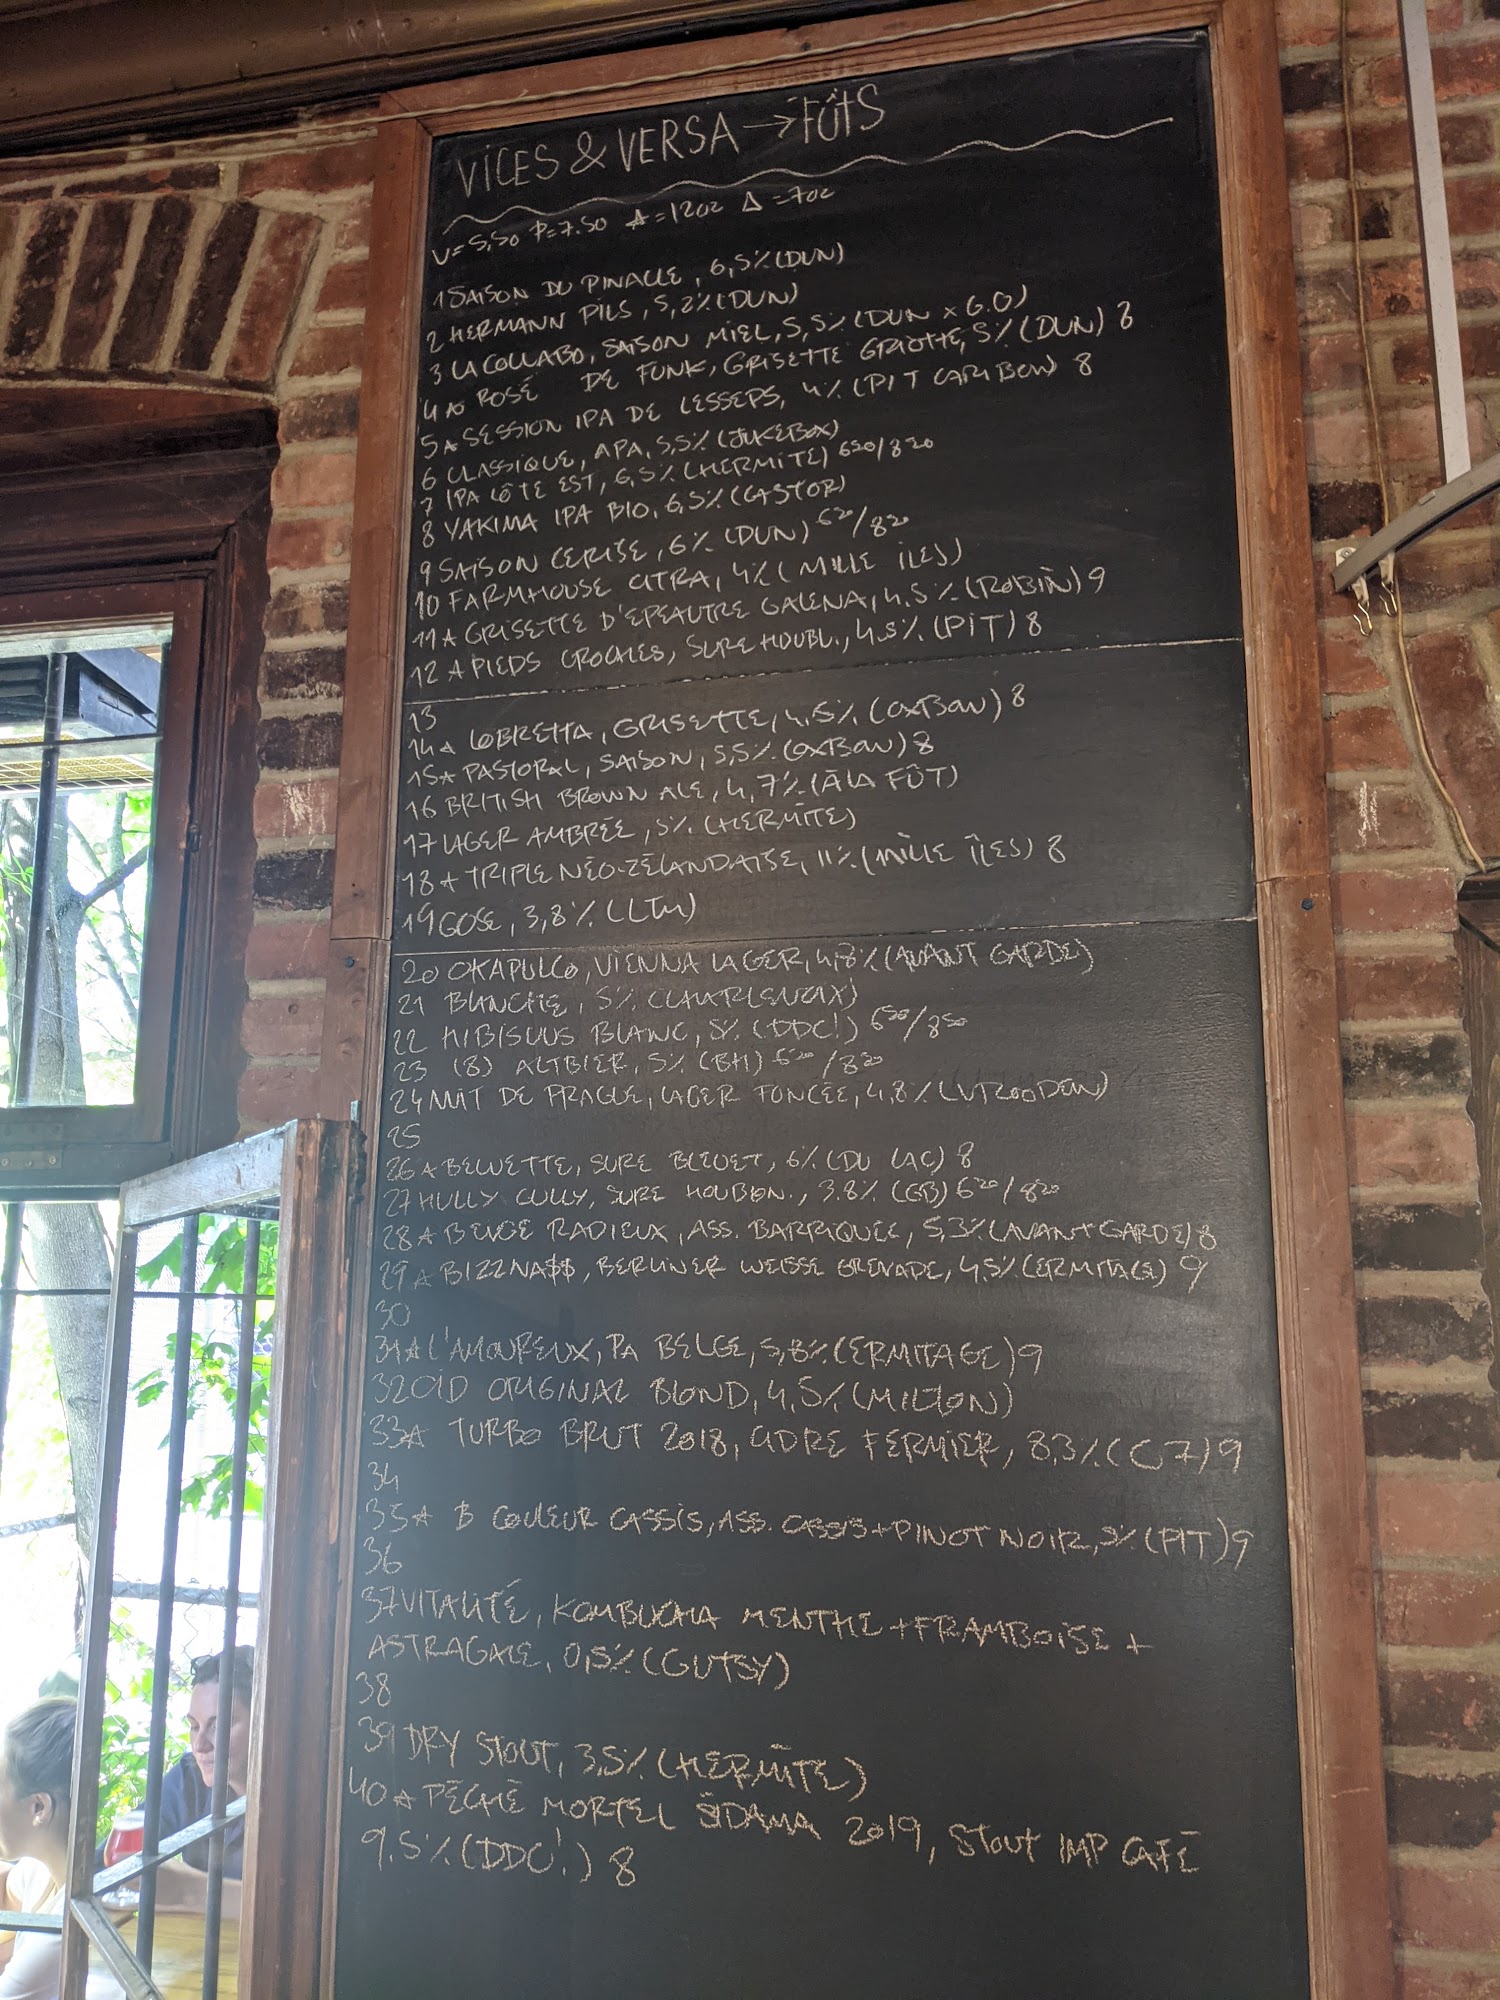 VICES & VERSA → FÛTS
V=5,50 P=7.50 ☆=12oz Δ=7oz
1 SAISON DU PINACLE, 6,5% (DUN)
2 HERMANN PILS, 5,2% (DUN)
3 LA COLLABO, SAISON MIEL, 5,5% (DUN x 6.0)
4 ☆ ROSÉ DE FUNK, GRISETTE GRIOTTE, 5% (DUN) 8
5 ☆ SESSION IPA DE LESSEPS, 4% (PIT CARIBOU) 8
6 CLASSIQUE, APA, 5,5% (JUKEBOX)
7 IPA CÔTE EST, 6,5% (HERMITE) 6²⁰/8²⁰
8 YAKIMA IPA BIO, 6,5% (CASTOR)
9 SAISON CERISE, 6% (DUN) 6²⁰/8²⁰
10 FARMHOUSE CITRA, 4% (MILLE ÎLES)
11 ☆ GRISETTE D'EPEAUTRE GALENA, 4,5% (ROBIN) 9
12 ☆ PIEDS CROCHES, SURE HOUBL., 4.5% (PIT) 8
13
14 ☆ LOBRETTA, GRISETTE, 4,5% (OXBOW) 8
15 ☆ PASTORAL, SAISON, 5,5% (OXBOW) 8
16 BRITISH BROWN ALE, 4,7% (À LA FÛT)
17 LAGER AMBRÉE, 5% (HERMITE)
18 ☆ TRIPLE NÉO-ZÉLANDAISE, 11% (MILLE ÎLES) 8
19 GOSE, 3,8% (LTM)
20 OKAPULCO, VIENNA LAGER, 4,8% (AVANT GARDE)
21 BLANCHE, 5% (CHARLEVOIX)
22 HIBISCUS BLANC, 5% (DDC!) 6²⁰/8²⁰
23 (8) ALTBIER, 5% (BH) 6²⁰/8²⁰
24 NUIT DE PRAGUE, LAGER FONCÉE, 4,8% (VROODEN)
25
26 ☆ BEUVETTE, SURE BLEUET, 6% (DU LAC) 8
27 HULLY GULLY, SURE HOUBLON., 3.8% (GB) 6²⁰/8²⁰
28 ☆ BELGE RADIEUX, ASS. BARRIQUÉE, 5,3% (AVANT GARDE) 8
29 ☆ BIZZNA$$, BERLINER WEISSE GRENADE, 4,5% (ERMITAGE) 9
30
31 ☆ L'AMOUREUX, PA BELGE, 5,8% (ERMITAGE) 9
32 OLD ORIGINAL BLOND, 4,5% (MILTON)
33 ☆ TURBO BRUT 2018, CIDRE FERMIER, 8,3% (C7) 9
34
35 ☆ B COULEUR CASSIS, ASS. CASSIS + PINOT NOIR, (PIT) 9
36
37 VITALITÉ, KOMBUCHA MENTHE + FRAMBOISE +
ASTRAGALE, 0,5% (GUTSY)
38
39 DRY STOUT, 3,5% (HERMITE)
40 ☆ PÉCHÉ MORTEL SIDAMA 2019, STOUT IMP CAFÉ
9.5% (DDC!) 8